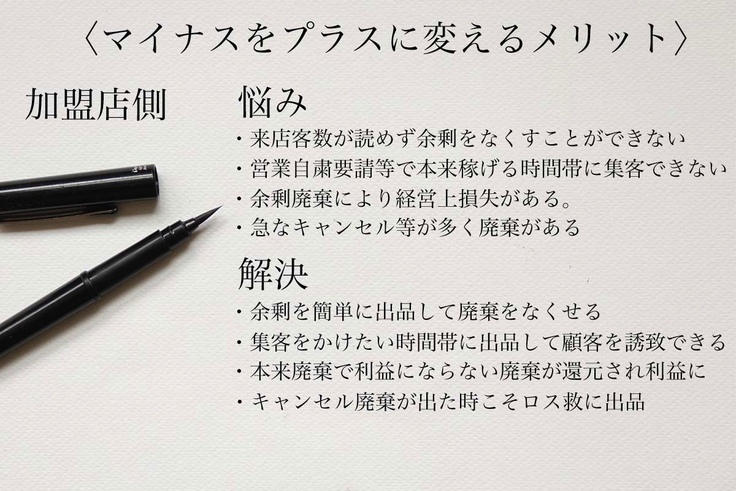 〈マイナスをプラスに変えるメリット〉
加盟店側
悩み
・来店客数が読めず余剰をなくすことができない
・営業自粛要請等で本来稼げる時間帯に集客できない
・余剰廃棄により経営上損失がある。
・急なキャンセル等が多く廃棄がある
解決
・余剰を簡単に出品して廃棄をなくせる
・集客をかけたい時間帯に出品して顧客を誘致できる
・本来廃棄で利益にならない廃棄が還元され利益に
・キャンセル廃棄が出た時こそロス救に出品